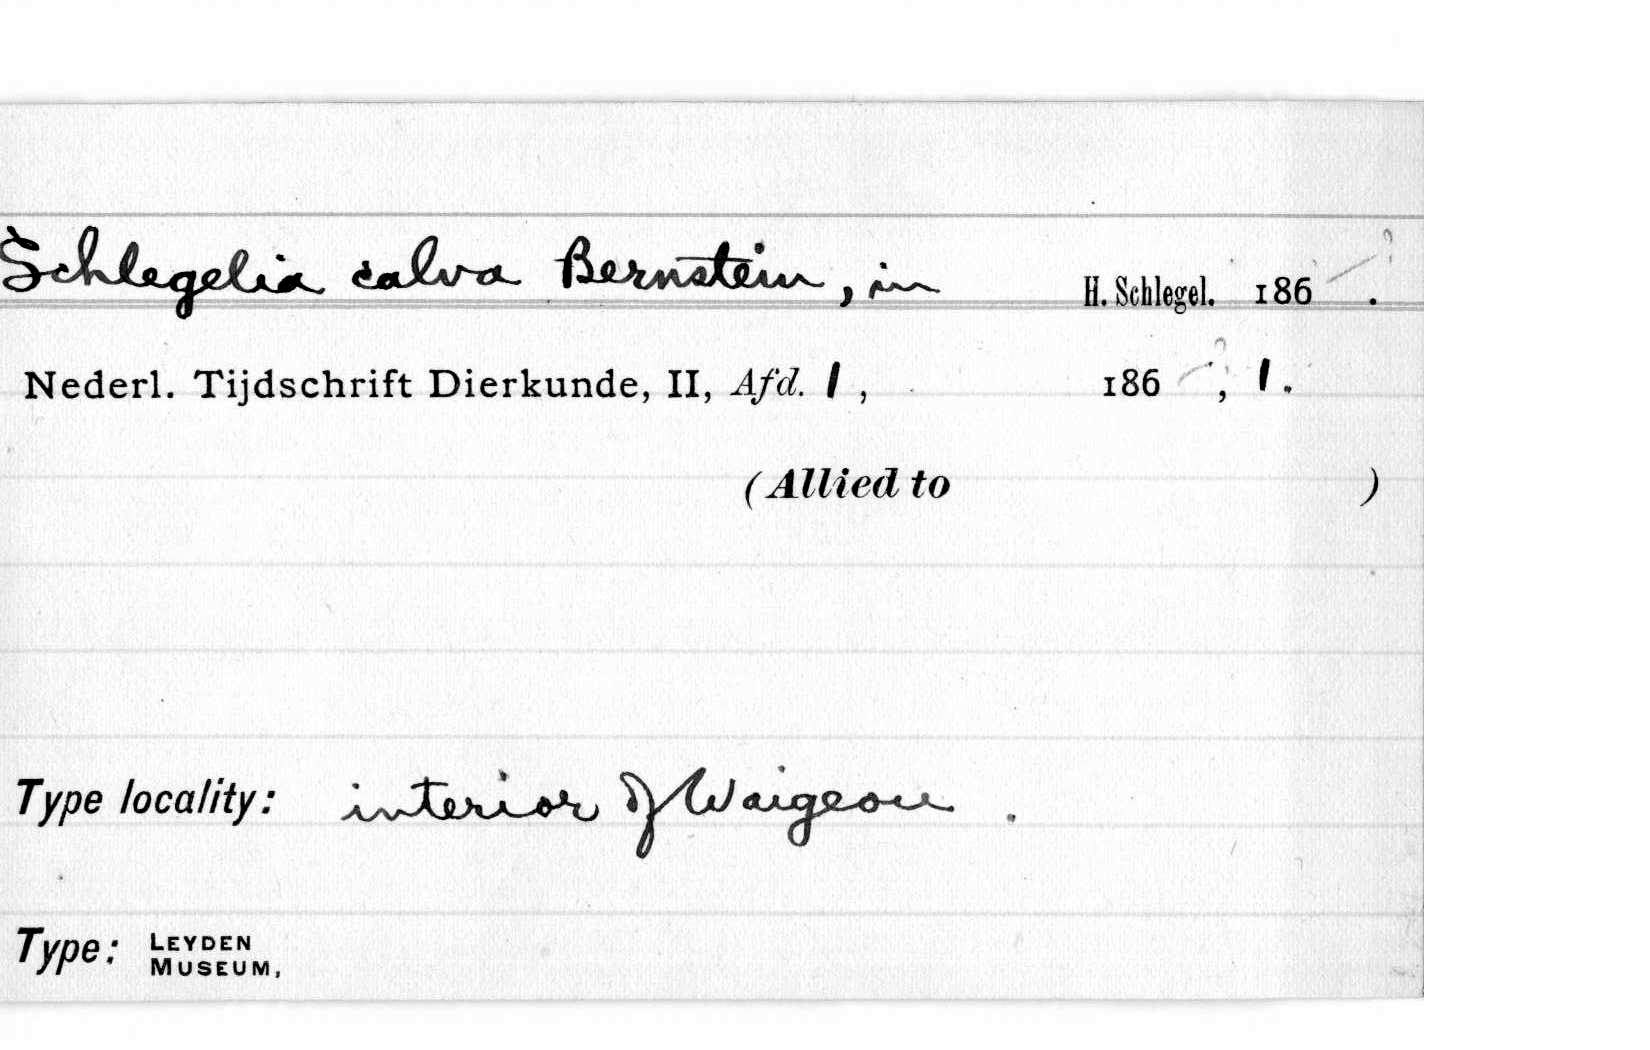 Schlegelia calva Bernstein, in H. Schlegel. 186 ?.
Nederl. Tijdschrift Dierkunde, II, Afd. 1, 186 ?, 1.
(Allied to )
Type locality: interior of Waigeou.
Type: LEYDEN
MUSEUM,